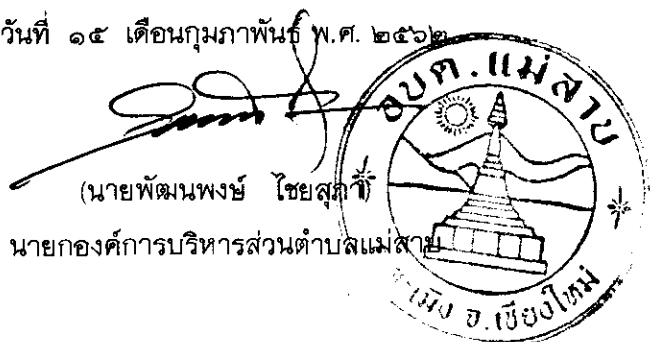 วันที่ ๑๕ เดือนกุมภาพันธ์ พ.ศ. ๒๕๖๒
อบต.แม่สาบ
(นายพัฒนพงษ์ ไชยสุภา)
นายกองค์การบริหารส่วนตำบลแม่สาบ
จ.เชียงใหม่